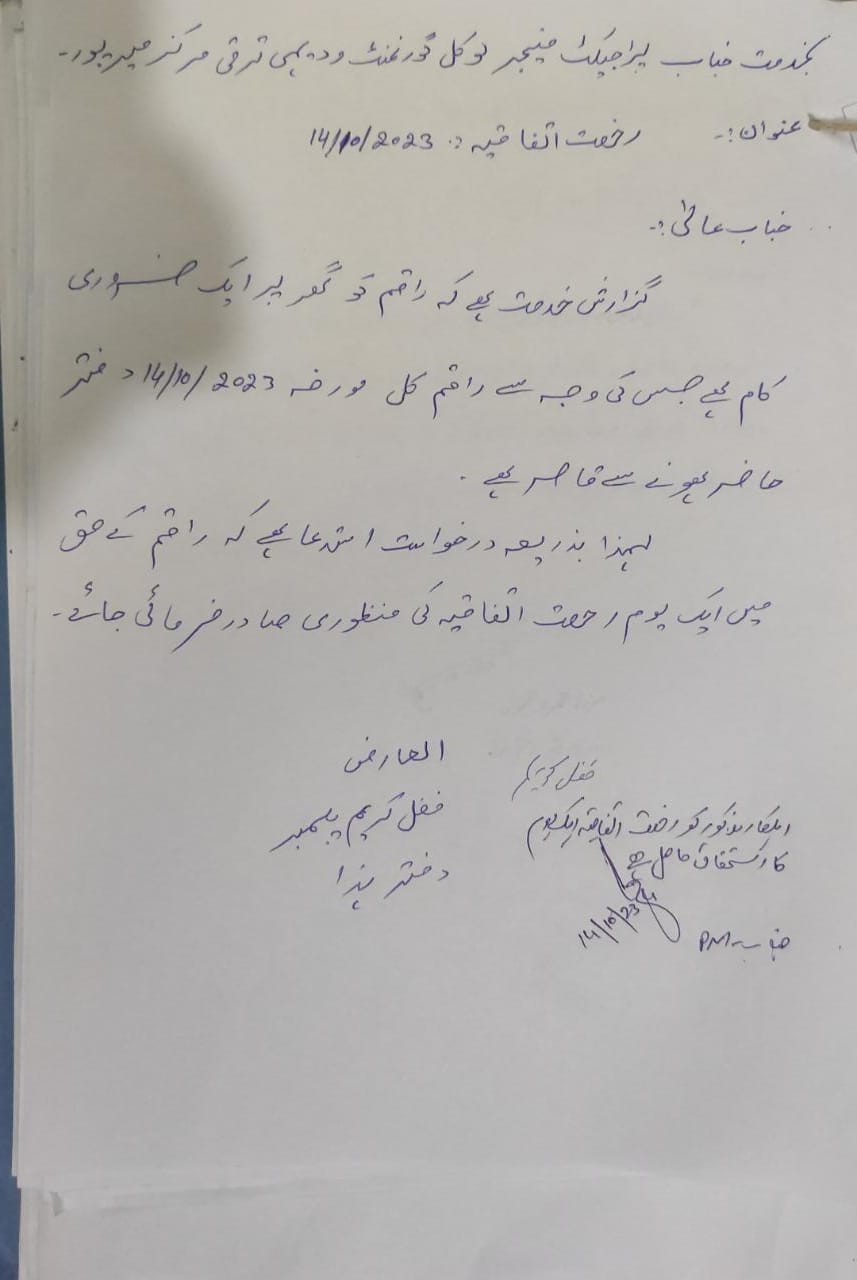 بخدمت جناب پراجیکٹ منیجر لوکل گورنمنٹ و دیہی ترقی مرکز میرپور۔
عنوان:۔ رخصت اتفاقیہ :۔ 14/10/2023
جناب عالی:۔
گزارش خدمت ہے کہ راقم کو گھر پر ایک ضروری
کام ہے جس کی وجہ سے راقم کل مورخہ 14/10/2023 دفتر
حاضر ہونے سے قاصر ہے۔
لہذا بذریعہ درخواست استدعا ہے کہ راقم کے حق
میں ایک یوم رخصت اتفاقیہ کی منظوری صادر فرمائی جائے۔
العارض
فضل کریم پلمبر
دفتر ہذا
فضل کریم
اہلکار مذکور کو رخصت اتفاقیہ ایک یوم
کا استحقاق حاصل ہے
14/10/23
جناب PM